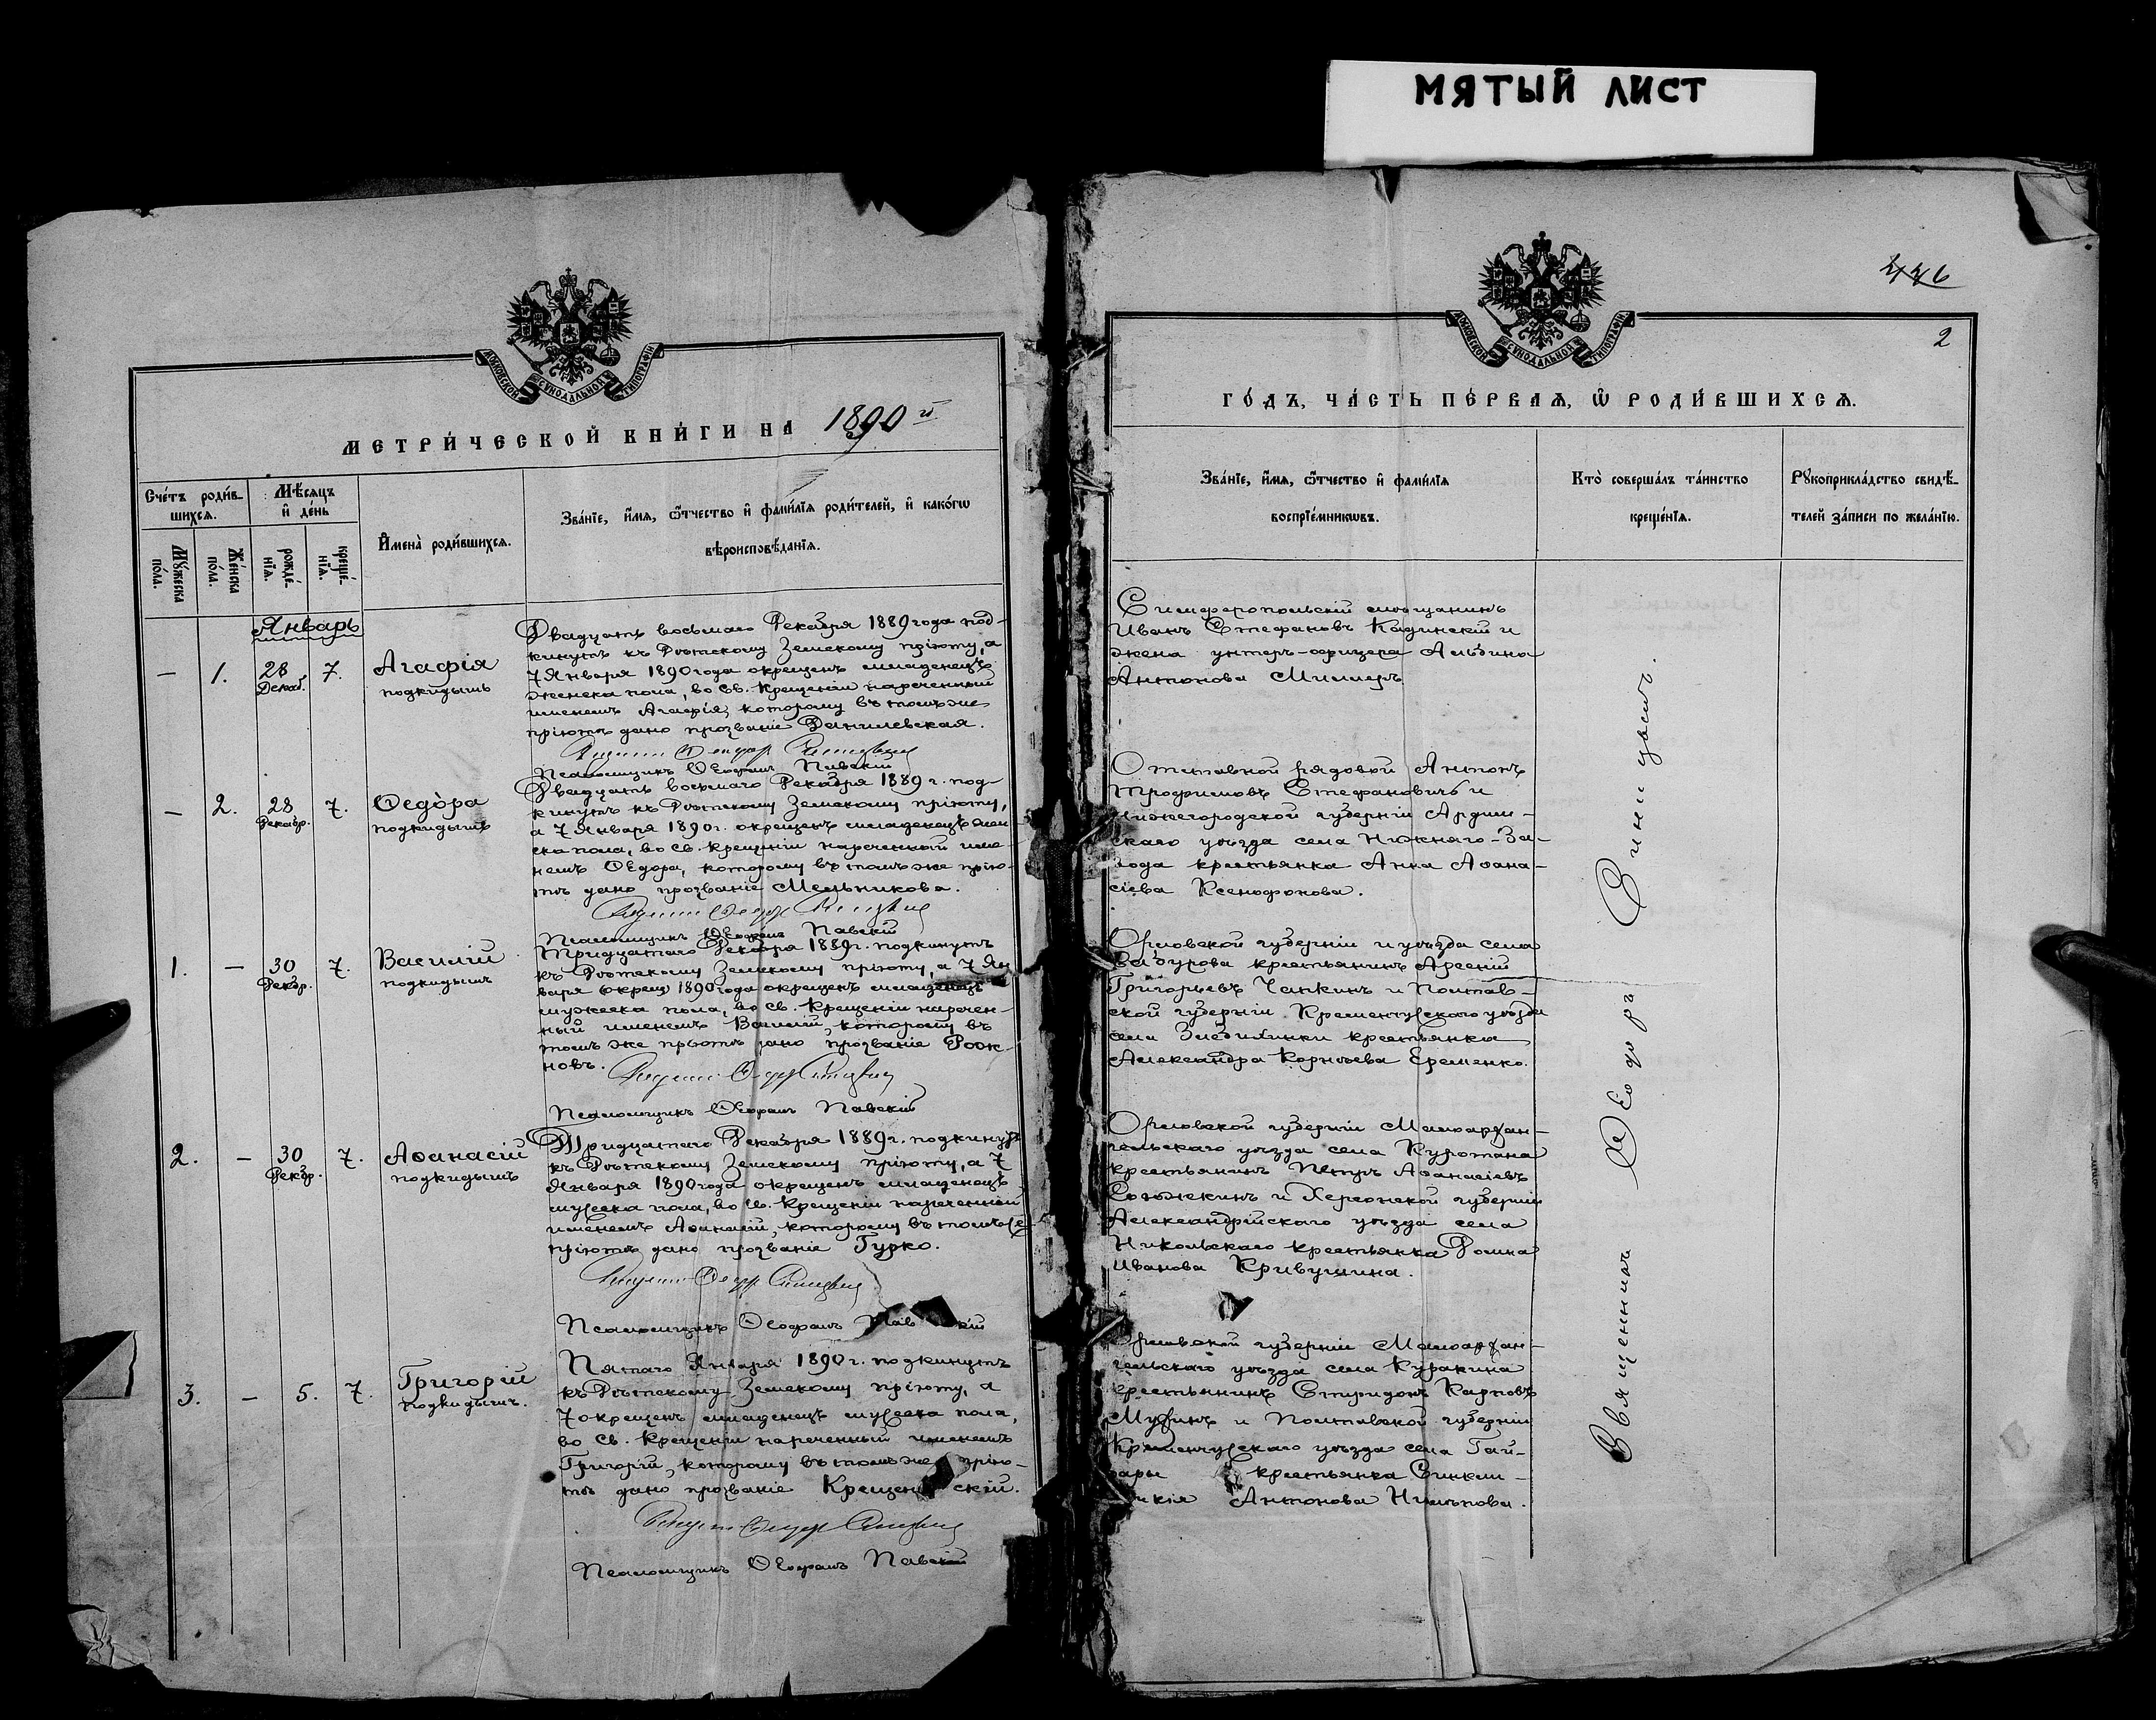 МЯТЫЙ ЛИСТ
МОСКОВСКОЙ СѴНОДАЛЬНОЙ ТИПОГРАФІИ
МЕТРИ́ЧЕСКОЙ КНИ́ГИ НА 1890 й.
Сче́тъ роди́в-
шихся.
Мѣ́сяцъ
и҆ де́нь
Мꙋ́жеска
по́ла.
Же́нска
по́ла.
рожде́-
нїѧ.
креще́-
нїѧ.
И҆мена̀ роди́вшихсѧ.
Зва́нїе, и҆́мѧ, ѻ҆́тчество и҆ фами́лїѧ роди́телей, и҆ како́гѡ
вѣроисповѣ́данїѧ.
Январь
— 1. 28 7.
Декаб.
Агафія
подкидышъ
Двадцать восьмаго Декабря 1889 года под-
кинутъ къ Дѣтскому Земскому пріюту, а
7 Января 1890 года окрещенъ младенецъ
женска пола, во Св. Крещеніи нареченный
именемъ Агафія, которому въ томъ же
пріютѣ дано прозваніе Данилевская.
Псаломщикъ Ѳеофанъ Павскій
— 2. 28 7.
Декабр.
Ѳедора
подкидышъ
Двадцать восьмаго Декабря 1889 г. под-
кинутъ къ Дѣтскому Земскому пріюту,
а 7 Января 1890 г. окрещенъ младенецъ жен-
ска пола, во Св. Крещеніи нареченный име-
немъ Ѳедора, которому въ томъ же прію-
тѣ дано прозваніе Мельникова.
Псаломщикъ Ѳеофанъ Павскій
1. — 30 7.
Декбр.
Василій
подкидышъ
Тридцатаго Декабря 1889 г. подкинутъ
къ Дѣтскому Земскому пріюту, а 7 Ян
варя (окрещ) 1890 года окрещенъ младенецъ
мужеска пола, во Св. Крещеніи наречен-
ный именемъ Василій, которому въ
томъ же пріютѣ дано прозваніе
новъ.
Псаломщикъ Ѳеофанъ Павскій
2. — 30 7.
Декбр.
Аѳанасій
подкидышъ
Тридцатаго Декабря 1889 г. подкинутъ
къ Дѣтскому Земскому пріюту, а 7
Января 1890 года окрещенъ младенецъ
мужеска пола, во Св. Крещеніи нареченный
именемъ Аѳанасій, которому въ томъ же
пріютѣ дано прозваніе Гурко.
Псаломщикъ Ѳеофанъ Павскій
3. — 5. 7.
Григорій
подкидышъ.
Пятаго Января 1890 г. подкинутъ
къ Дѣтскому Земскому пріюту, а
7 окрещенъ младенецъ мужеска пола,
во Св. Крещеніи нареченный именемъ
Григорій, которому въ томъ же прію-
тѣ дано прозваніе Крещенскій.
Псаломщикъ Ѳеофанъ Павскій
2
МОСКОВСКОЙ СѴНОДАЛЬНОЙ ТИПОГРАФІИ
ГО́ДЪ, ЧА́СТЬ ПЕ́РВАѦ, Ѽ РОДИ́ВШИХСѦ.
Зва́нїе, и҆́мѧ, ѻ҆́тчество и҆ фами́лїѧ
воспрїе́мникѡвъ.
Кто̀ соверша́лъ та́инство
креще́нїѧ.
Рꙋкоприкла́дство свидѣ́-
телей за́писи по жела́нїю.
Симферопольскій мѣщанинъ
Иванъ Стефановъ Кадинскій и
жена унтеръ-офицера Альбина
Антонова Миллеръ.
Отставной рядовой Антонъ
Трофимовъ Стефановичъ и
Нижегородской губерніи
скаго уѣзда села Нижняго-За-
вода крестьянка Анна Аѳана-
сіева Ксенофонова.
Орловской губерніи и уѣзда села
крестьянинъ Арсеній
Григорьевъ Чапкинъ и Полтав-
ской губерніи Кременчугскаго уѣзда
села крестьянка
Александра Корнѣева Еременко.
Орловской губерніи Малоархан-
гельскаго уѣзда села
крестьянинъ Петръ Аѳанасіевъ
и Херсонской губерніи
Александрійскаго уѣзда села
Никольскаго крестьянка Домна
Иванова Кривушина.
Орловской губерніи Малоархан-
гельскаго уѣзда села Куракина
крестьянинъ Спиридонъ Карповъ
и Полтавской губерніи
Кременчугскаго уѣзда села
крестьянка
Антонова
Священникъ Ѳеодоръ